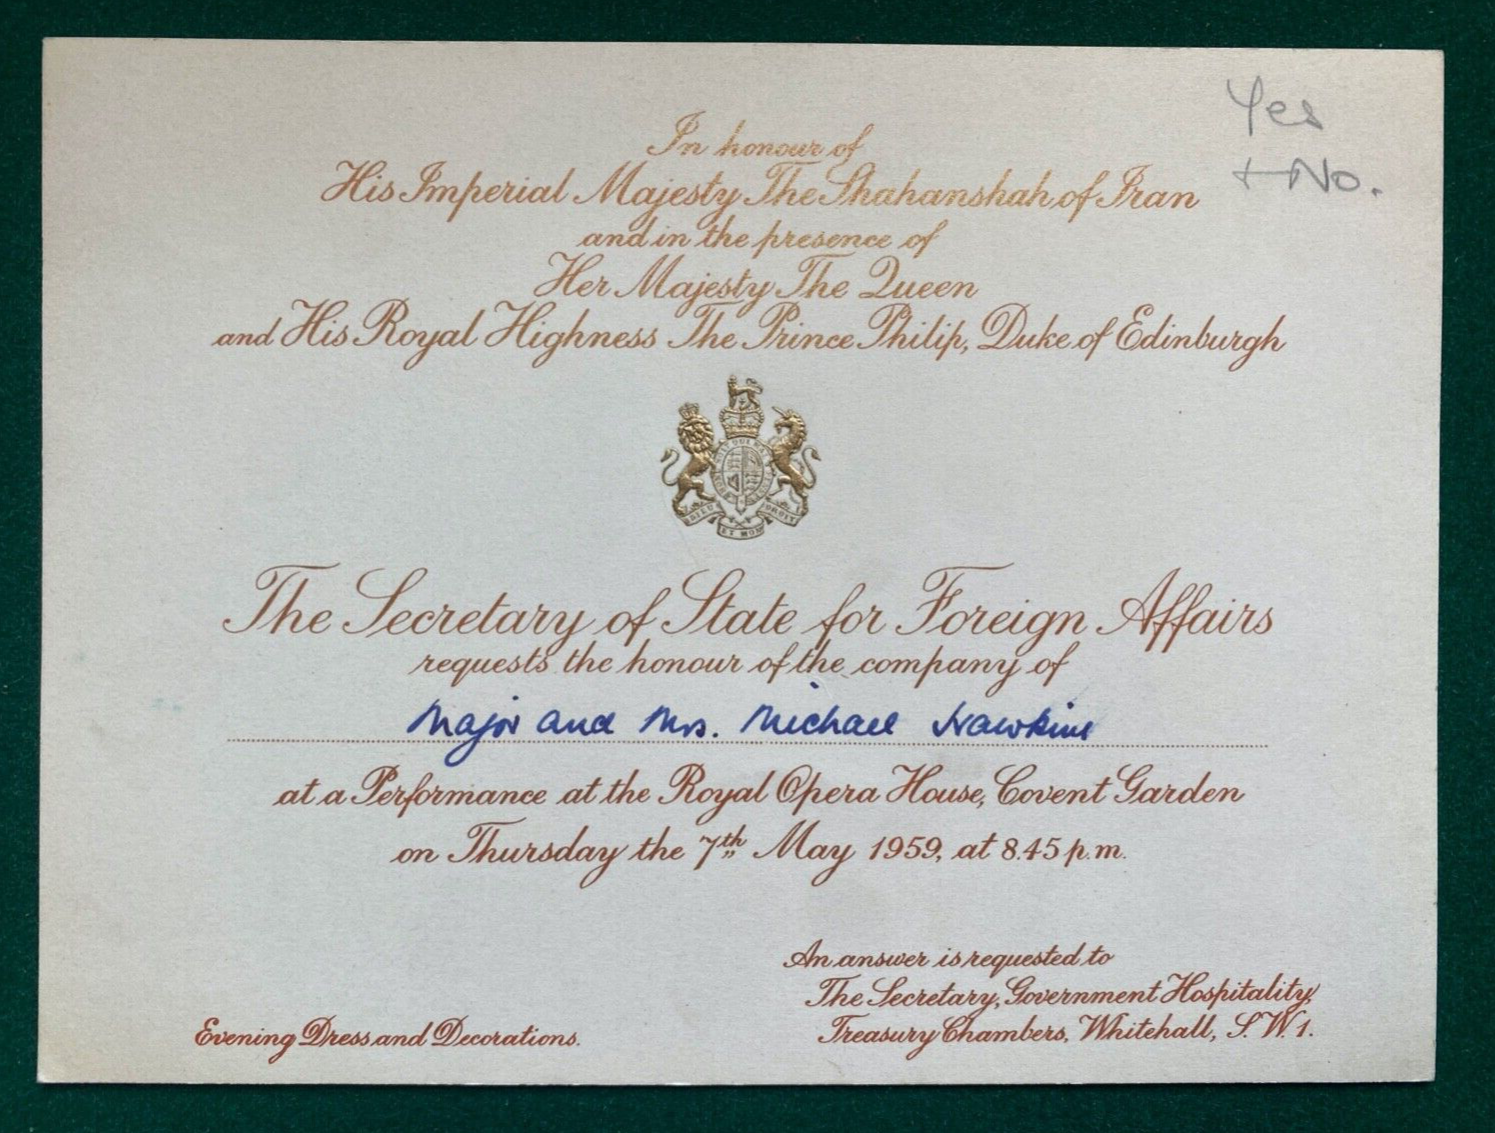 Yes
+ No.
In honour of
His Imperial Majesty The Shahanshah of Iran
and in the presence of
Her Majesty The Queen
and His Royal Highness The Prince Philip, Duke of Edinburgh
DIEU ET MON DROIT
The Secretary of State for Foreign Affairs
requests the honour of the company of
Major and Mrs. Michael Hawkins
at a Performance at the Royal Opera House, Covent Garden
on Thursday the 7th May 1959, at 8.45 p.m.
An answer is requested to
The Secretary, Government Hospitality,
Treasury Chambers, Whitehall, S.W.1.
Evening Dress and Decorations.